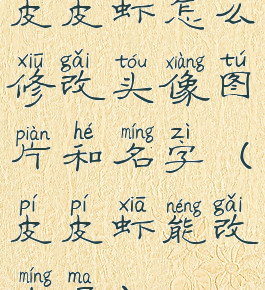 皮皮虾怎么
xiū gǎi tóu xiàng tú
修改头像图
piàn hé míng zì
片和名字（
pí pí xiā néng gǎi
皮皮虾能改
míng ma